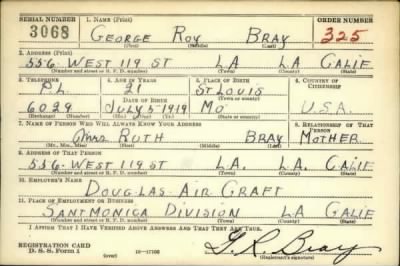 SERIAL NUMBER 1. NAME (Print) ORDER NUMBER
3068 GEORGE ROY BRAY 325
(First) (Middle) (Last)
2. ADDRESS (Print)
556 WEST 119 ST LA LA CALIF
(Number and street or R. F. D. number) (Town) (County) (State)
3. TELEPHONE 4. AGE IN YEARS 5. PLACE OF BIRTH 6. COUNTRY OF CITIZENSHIP
PL. 21 ST LOUIS
(Town or county)
6029 DATE OF BIRTH JULY 5-1919 MO U.S.A.
(Exchange) (Number) (Mo.) (Day) (Yr.) (State or country)
7. NAME OF PERSON WHO WILL ALWAYS KNOW YOUR ADDRESS 8. RELATIONSHIP OF THAT PERSON
Mrs RUTH BRAY MOTHER
(Mr., Mrs., Miss) (First) (Middle) (Last)
9. ADDRESS OF THAT PERSON
556 WEST 119 ST L.A. L.A. CALIF
(Number and street or R. F. D. number) (Town) (County) (State)
10. EMPLOYER'S NAME
DOUGLAS AIR CRAFT
11. PLACE OF EMPLOYMENT OR BUSINESS
SANTMONICA DIVISION LA CALIF
(Number and street or R. F. D. number) (Town) (County) (State)
I AFFIRM THAT I HAVE VERIFIED ABOVE ANSWERS AND THAT THEY ARE TRUE.
REGISTRATION CARD
D. S. S. Form 1 (over) 16—17105 G. R. Bray
(Registrant's signature)